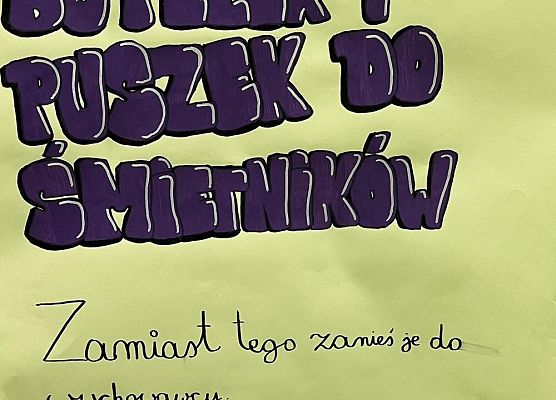 BUTELEK I
PUSZEK DO
ŚMIETNIKÓW
Zamiast tego zanieś je do
wychowawcy.